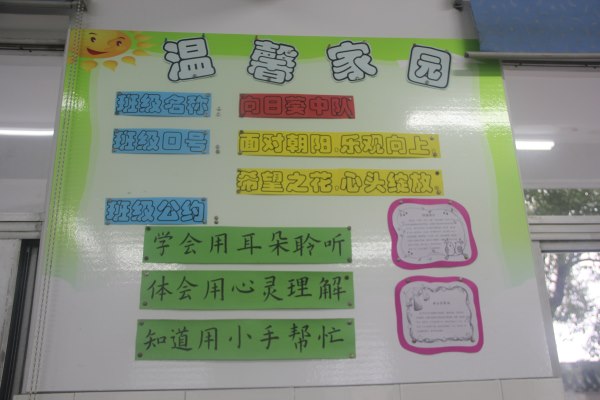 温馨家园
班级名称：向日葵中队
班级口号：面对朝阳、乐观向上
希望之花、心头绽放
班级公约：
学会用耳朵聆听
体会用心灵理解
知道用小手帮忙